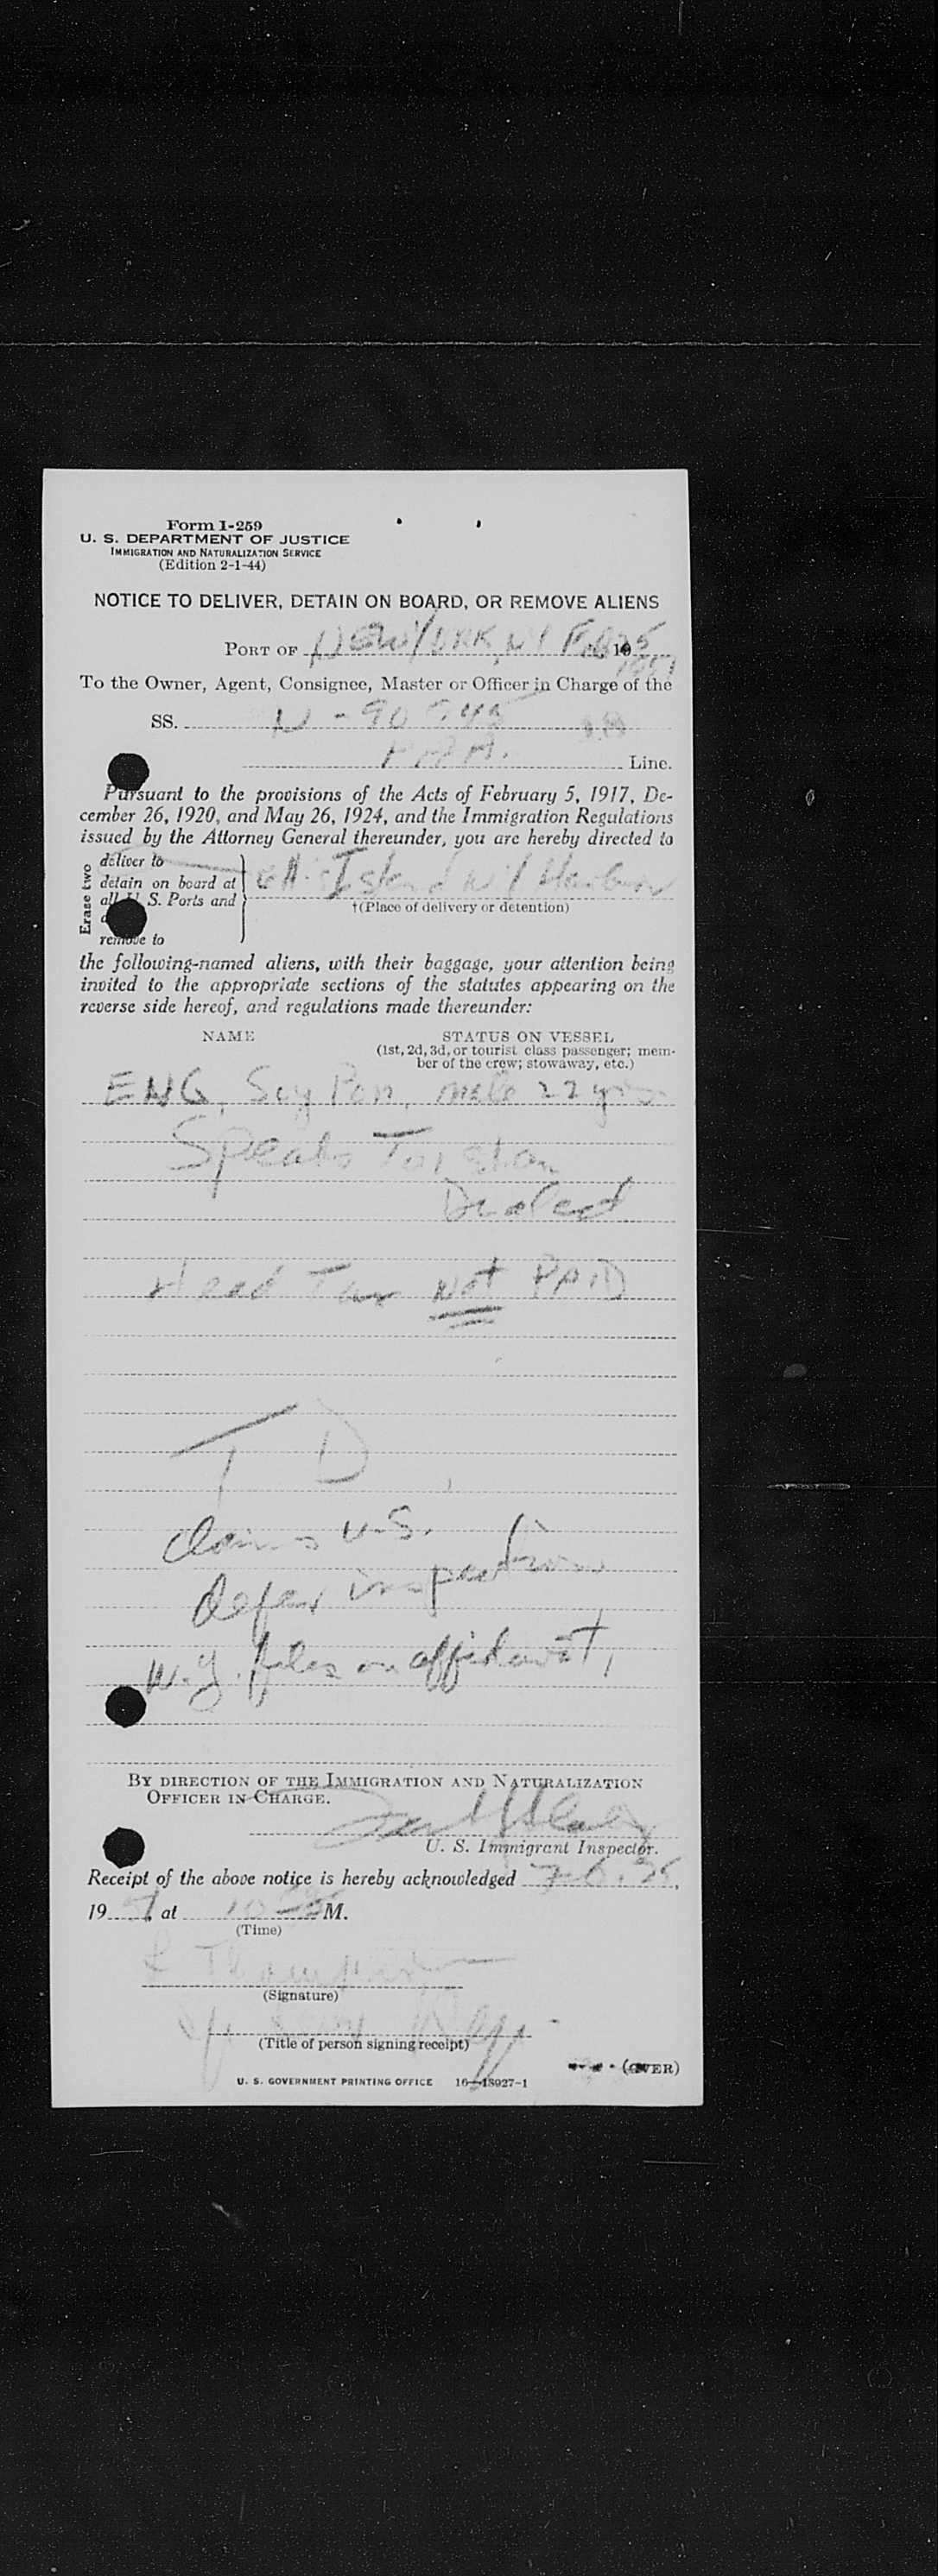 Form I-259
U. S. DEPARTMENT OF JUSTICE
IMMIGRATION AND NATURALIZATION SERVICE
(Edition 2-1-44)
NOTICE TO DELIVER, DETAIN ON BOARD, OR REMOVE ALIENS
PORT OF NEW YORK, NY Feb 25 19
1951
To the Owner, Agent, Consignee, Master or Officer in Charge of the
SS. N-90
P.A.A. Line.
Pursuant to the provisions of the Acts of February 5, 1917, De-
cember 26, 1920, and May 26, 1924, and the Immigration Regulations
issued by the Attorney General thereunder, you are hereby directed to
Erase two
deliver to
detain on board at Island NY Harbor
all U. S. Ports and
†(Place of delivery or detention)
remove to
the following-named aliens, with their baggage, your attention being
invited to the appropriate sections of the statutes appearing on the
reverse side hereof, and regulations made thereunder:
NAME STATUS ON VESSEL
(1st, 2d, 3d, or tourist class passenger; mem-
ber of the crew; stowaway, etc.)
ENG, Suy Pon, male 22 yrs
Speaks Toishan
Dialect
Head Tax Not PAID
T D
Claims U.S.
defer inspection
N.Y. files on affidavit,
BY DIRECTION OF THE IMMIGRATION AND NATURALIZATION
OFFICER IN CHARGE.
U. S. Immigrant Inspector.
Receipt of the above notice is hereby acknowledged Feb. 25,
19 51, at 10 M.
(Time)
(Signature)
(Title of person signing receipt)
(OVER)
U. S. GOVERNMENT PRINTING OFFICE 16—18027-1